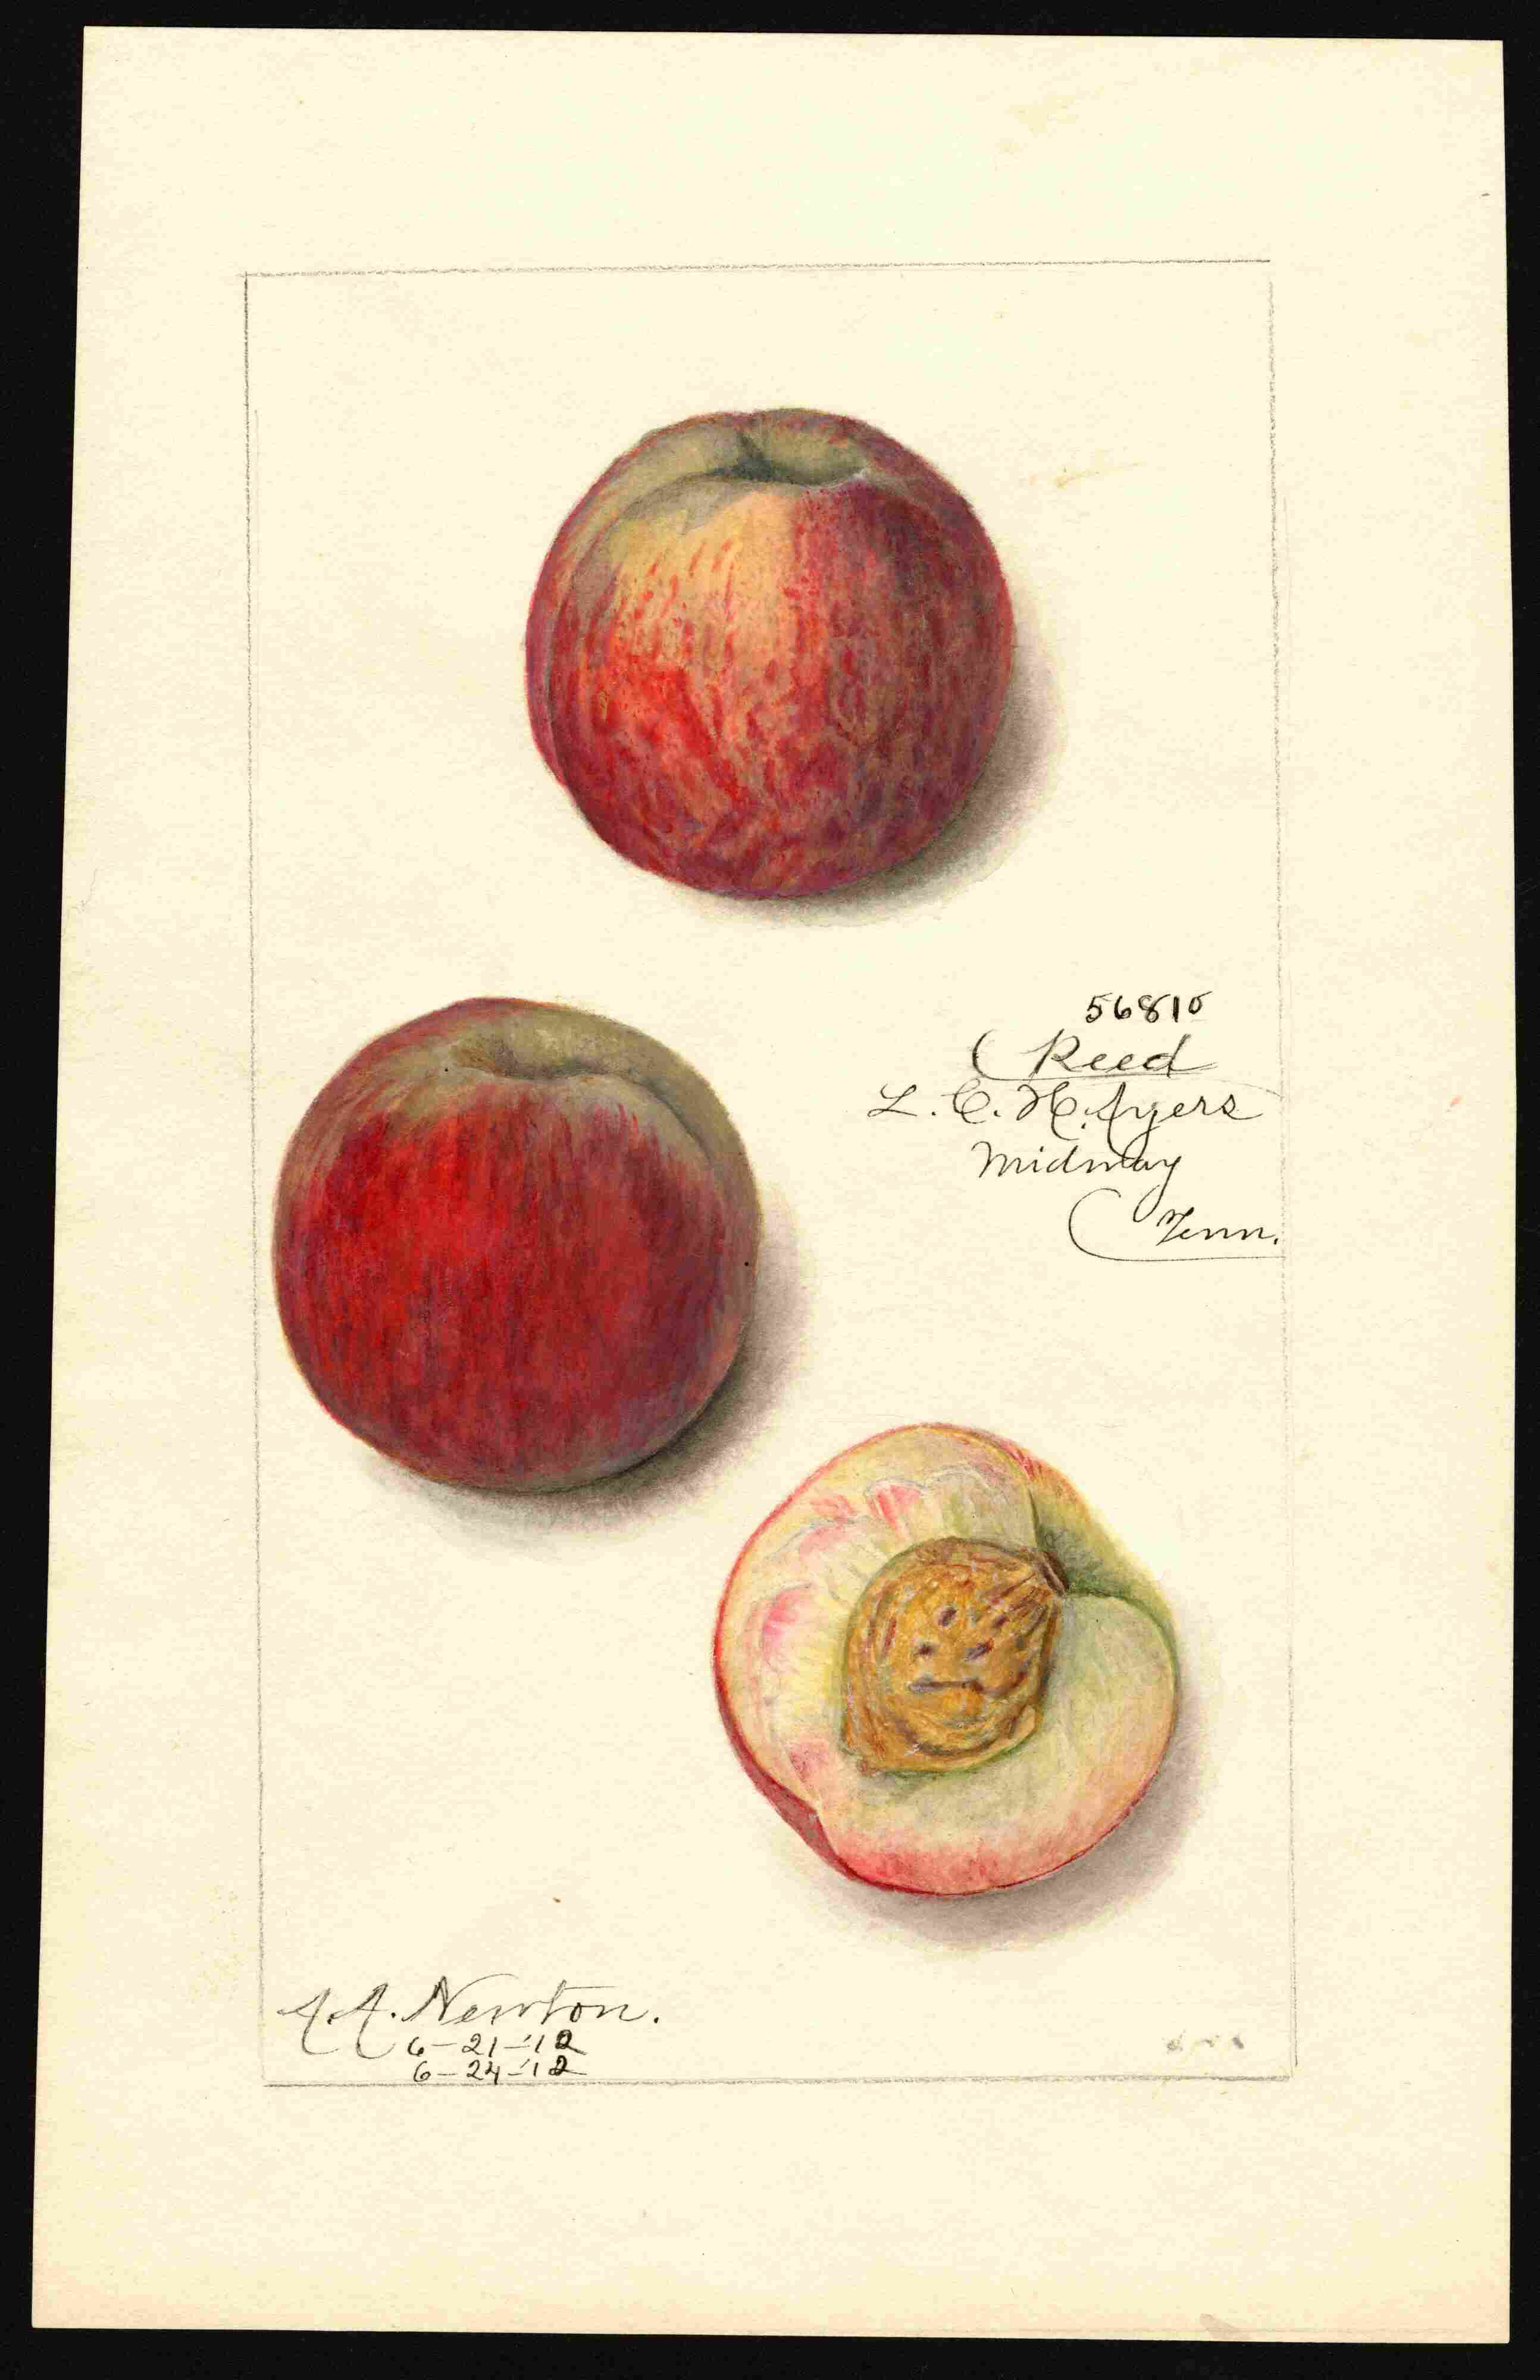 56815
Reed
L. C. H. Ayers
Midway
Tenn.
A. A. Newton.
6-21-'12
6-24-'12